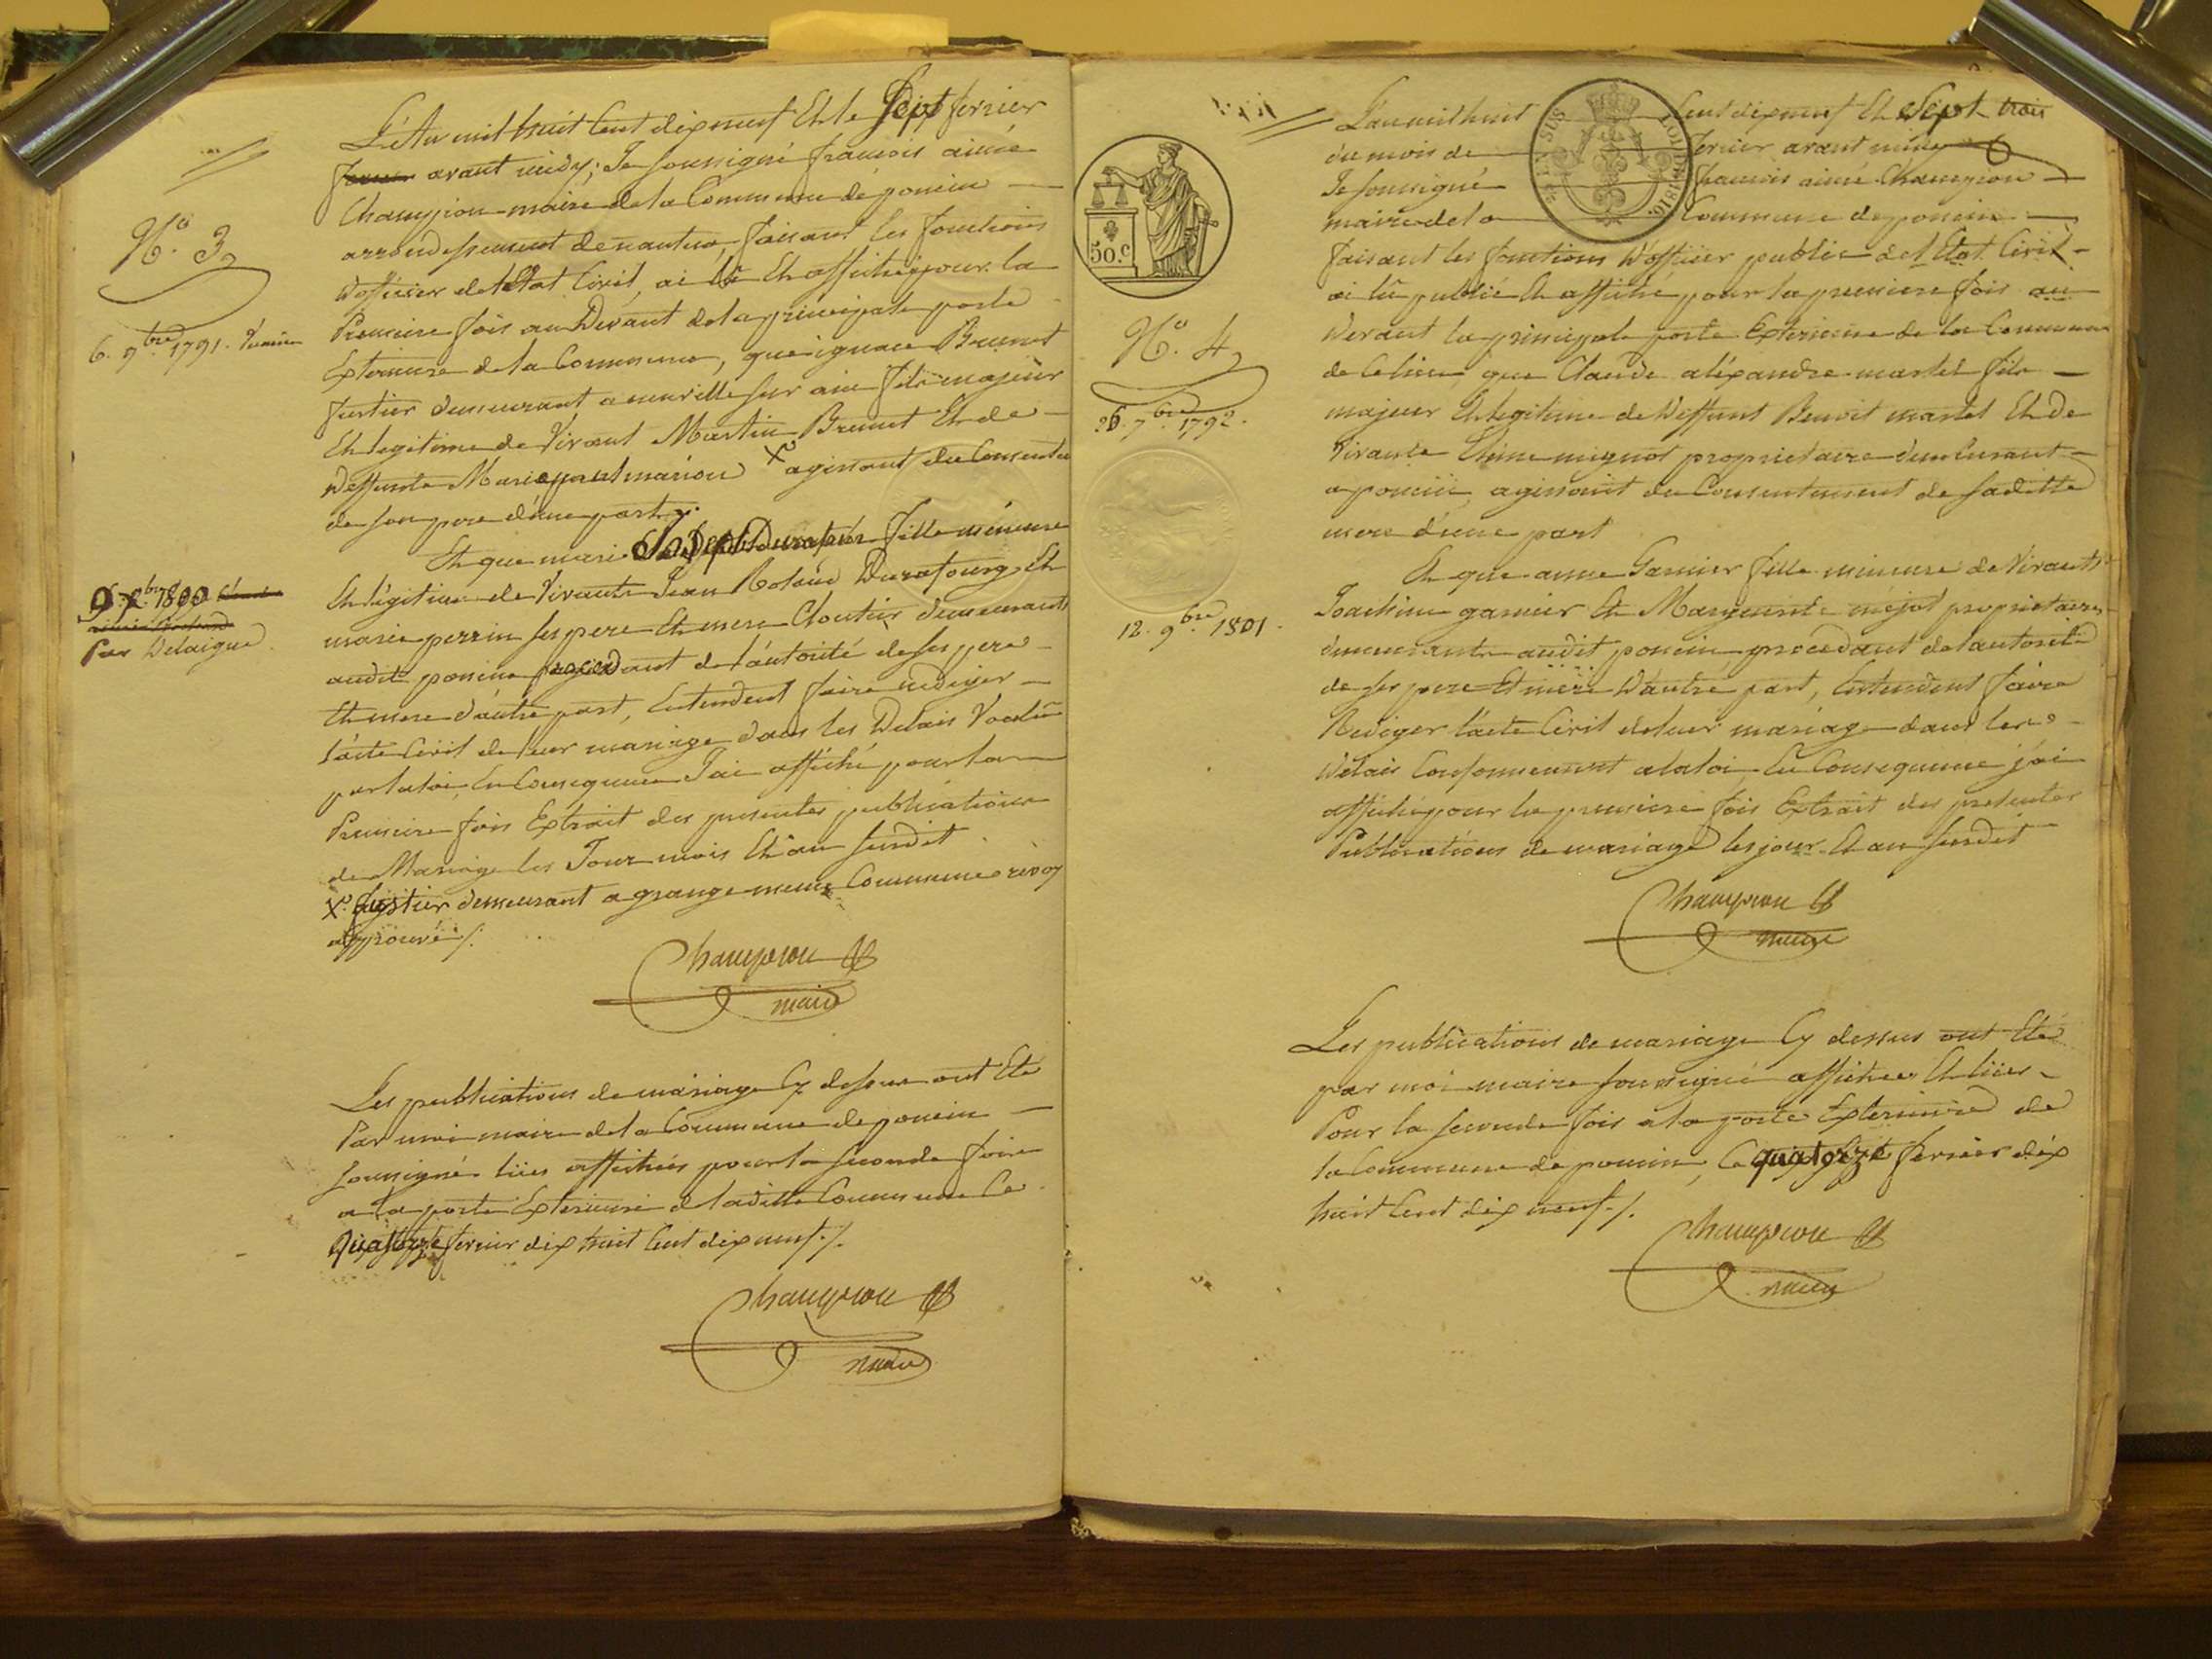 L'An mil huit Cent dix neuf Et le Sept fevrier
avant midy; Je soussigné françois aimé
Champion maire de la Commune de poncin
arrondissement de nantua, faisant les fonctions
d'officier de l'Etat Civil, ai lû Et affiché pour la
Premiere fois au Devant de la principale porte
Exterieure de la Commune, que ignace Brunet
fustier demeurant a neuville sur ain fils majeur
Et legitime de Vivant Martin Brunet Et de
deffunte Marie marion X agissant du Consentem
de son pere d'une part
N.o 3
6. 9.bre 1791.
Et que marie Joseph Durafour fille mineure
Et légitime de Vivants Jean Roland Durafourg Et
marie perrin ses pere Et mere Cloutier demeurants
audit poncin procedant de l'autorité de ses pere
Et mere d'autre part, Entendent faire rediger
l'acte Civil de leur mariage dans les Delais Voulu
par la loi, En Consequence J'ai affiché pour la
Premiere fois Extrait des presentes publications
de Mariage les Jour mois Et an susdit
X. fustier demeurant a grange meme Commune renvoy
approuvé /.
9. X.bre 1800
Par Delaigue
Champion
maire
Les publications de mariage Cy dessus ont Eté
Par moi maire de la Commune de poncin
soussigné lües affichées pour la seconde fois
a la porte Exterieure de ladite Commune Ce
quatorze fevrier dix huit Cent dix neuf ./.
Champion
maire
L'an mil huit Cent dix neuf Et le Sept trois
du mois de fevrier avant midy
Je soussigné françois aimé Champion
maire de la Commune de poncin
faisant les fonctions d'officier public de l'Etat Civil
ai lû publié Et affiché pour la premiere fois au
devant la principale porte Exterieure de la Commune
de Ce lieu, que Claude aléxandre martel fils
majeur Et legitime de deffunt Benoit martel Et de
Vivante mignot proprietaire demeurant
a poncin, agissant du Consentement de sadite
mere d'une part
EN SUS
LOI DE 1816.
50.c
N.o 4
26. 7.bre 1792.
Et que anne Garnier fille mineure de Vivants
Joachim garnier Et Marguerite mejat proprietaires
demeurants audit poncin procedant de l'autorité
de ses pere Et mere d'autre part, Entendent faire
Rediger l'acte Civil de leur mariage dans les
délais Conformement a la loi, En Consequence j'ai
affiché pour la premiere fois Extrait des presentes
Publications de mariage les jour Et an susdit
12. 9.bre 1801.
Champion
maire
Les publications de mariage Cy dessus ont Eté
par moi maire soussigné affichées Et lües
Pour la seconde fois a la porte Exterieure de
la Commune de poncin, Ce quatorze fevrier dix
huit Cent dix neuf ./.
Champion
maire